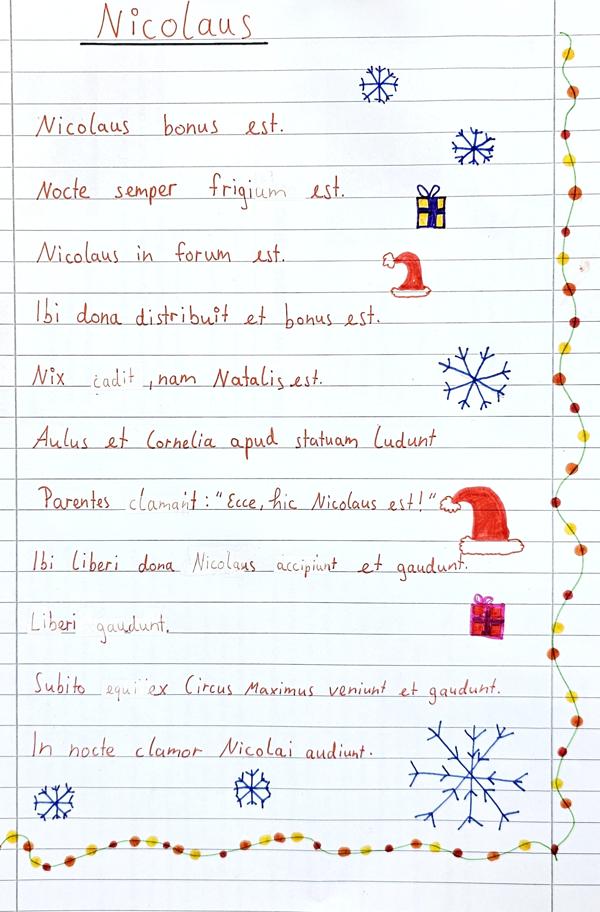 Nicolaus
Nicolaus bonus est.
Nocte semper frigium est.
Nicolaus in forum est.
Ibi dona distribuit et bonus est.
Nix cadit, nam Natalis est.
Aulus et Cornelia apud statuam ludunt
Parentes clamant: "Ecce, hic Nicolaus est!"
Ibi liberi dona Nicolaus accipiunt et gaudunt.
Liberi gaudunt.
Subito equi ex Circus Maximus veniunt et gaudunt.
In nocte clamor Nicolai audiunt.